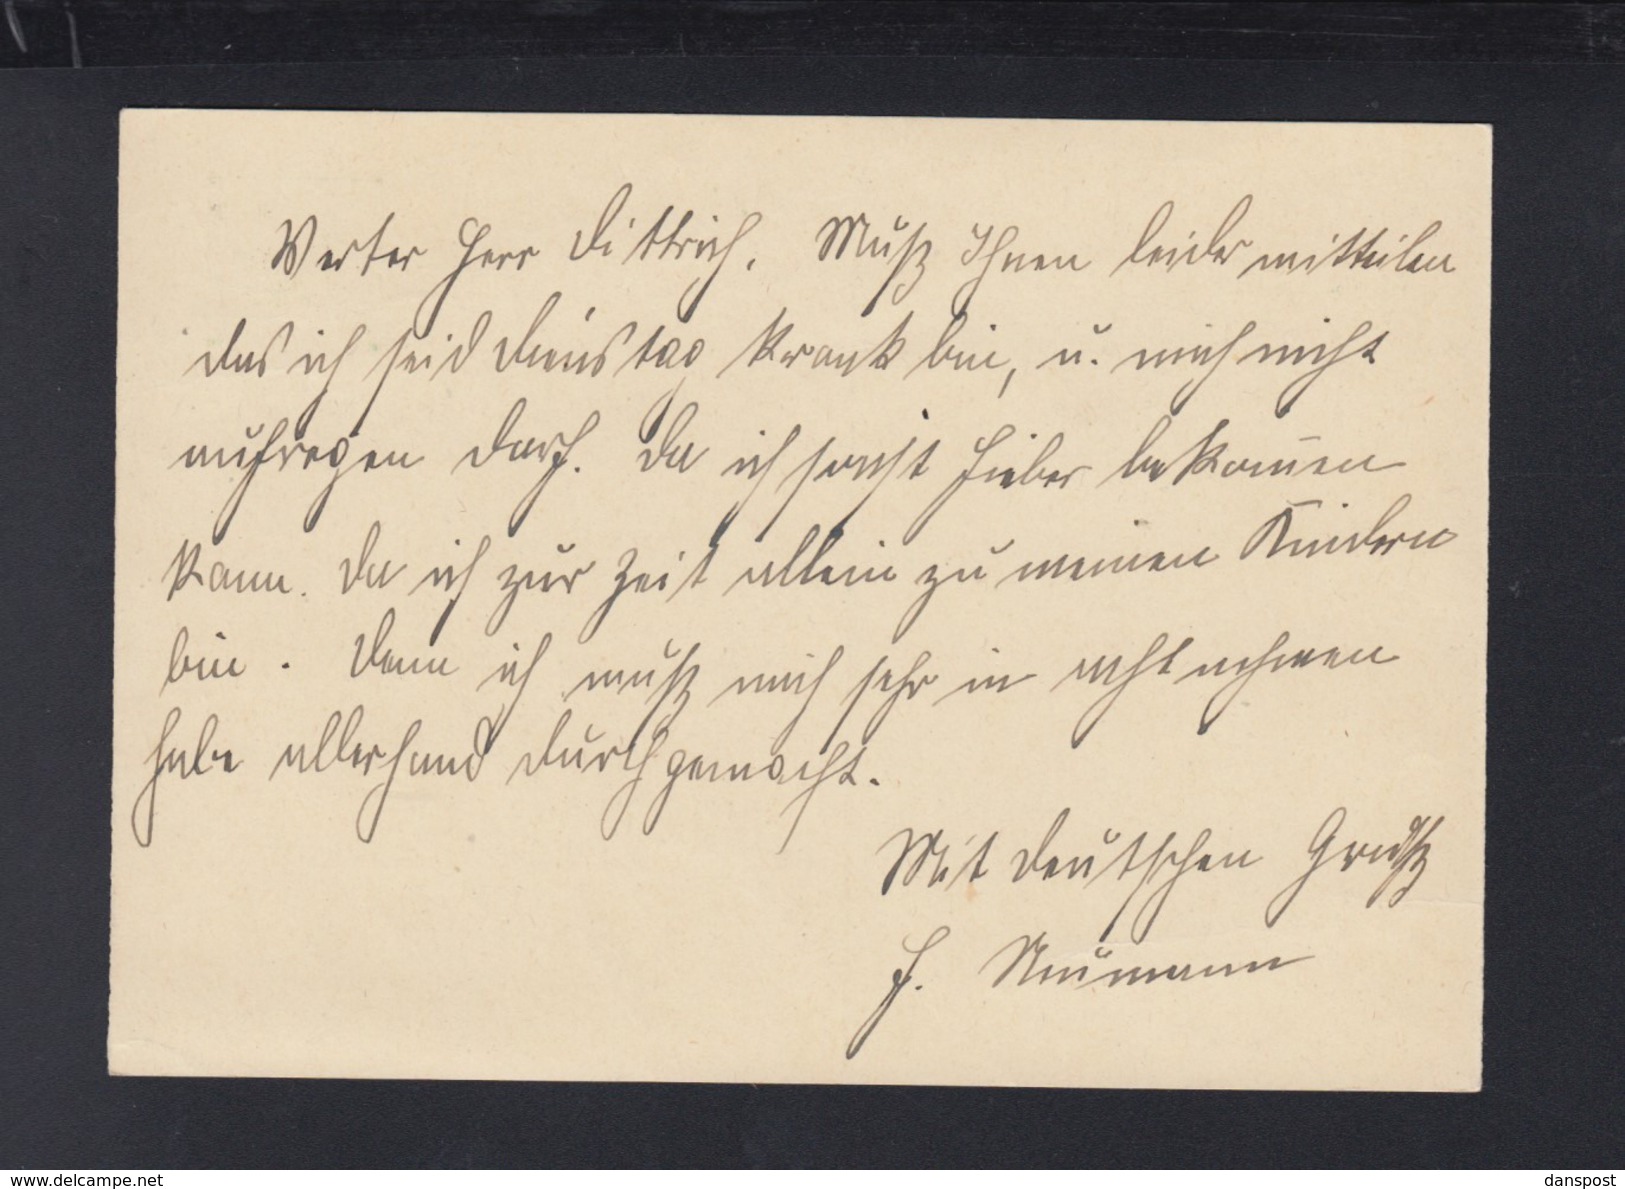 Werter Herr Dittrich. Muß Ihnen leider mitteilen
das ich seid Dienstag krank bin, u. mich nicht
aufregen darf. Da ich sonst Fieber bekommen
kann. Da ich zur Zeit allein zu meinen Kindern
bin. Denn ich muß mich sehr in acht nehmen
habe allerhand durchgemacht.
Mit deutschen Gruß
H. Neumann
www.delcampe.net
danspost